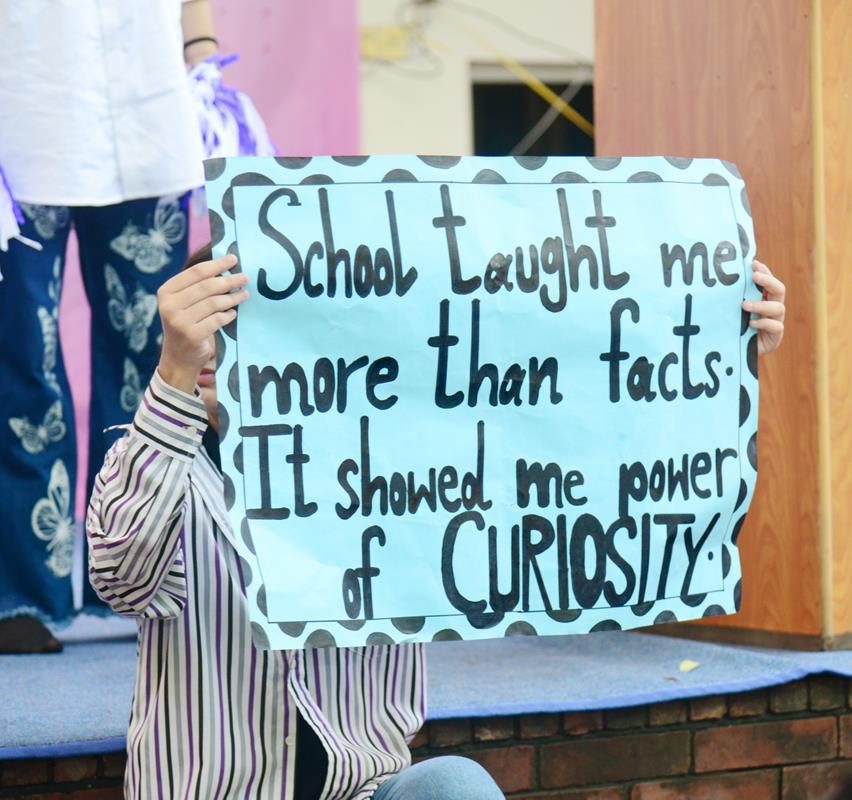 School taught me
more than facts.
It showed me power
of CURIOSITY.